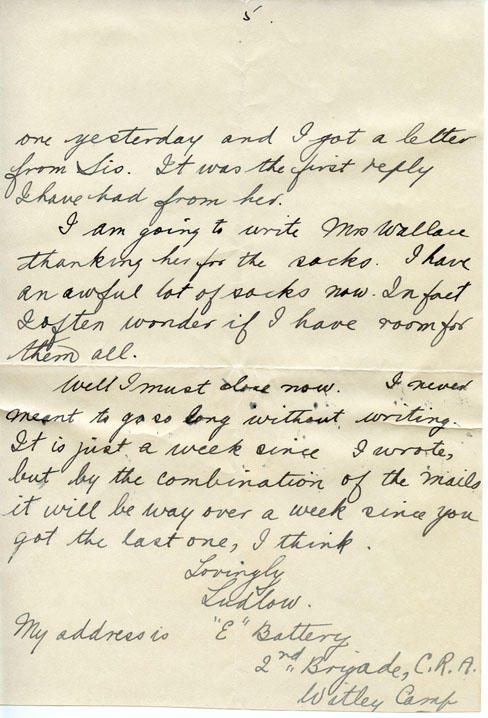 5.
one yesterday and I got a letter
from Sis. It was the first reply
I have had from her.
I am going to write Mrs Wallace
thanking her for the socks. I have
an awful lot of socks now. In fact
I often wonder if I have room for
them all.
Well I must close now. I never
meant to go so long without writing.
It is just a week since I wrote,
but by the combination of the mails
it will be way over a week since you
got the last one, I think.
Lovingly
Ludlow.
My address is "E" Battery
2nd Brigade, C.R.A.
Witley Camp